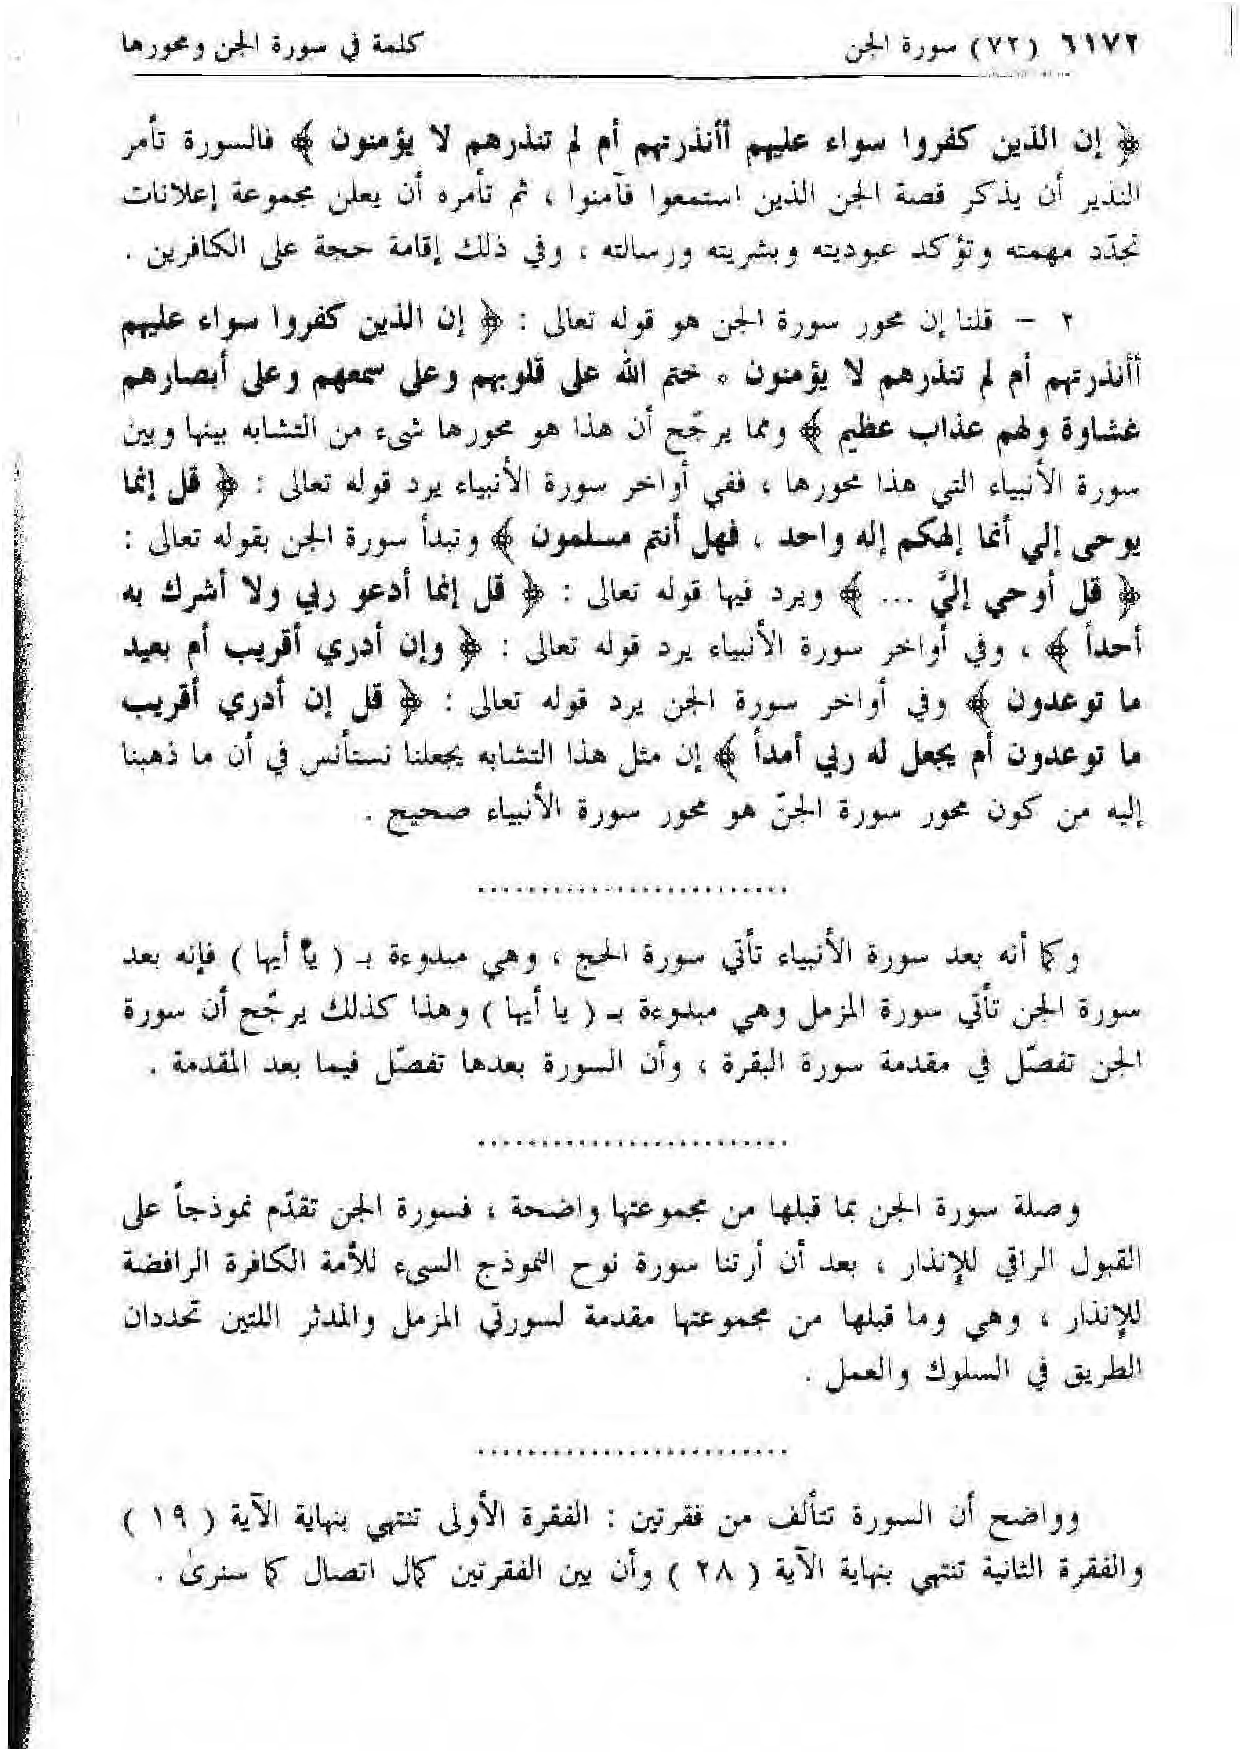 ٦١٧٢ (٧٢) سورة الجن كلمة في سورة الجن ومحورها
﴿ إن الذين كفروا سواء عليهم أأنذرتهم أم لم تنذرهم لا يؤمنون ﴾ فالسورة تأمر
النذير أن يذكر قصة الجن الذين استمعوا فآمنوا ، ثم تأمره أن يعلن مجموعة إعلانات
تحدّد مهمته وتؤكد عبوديته وبشريته ورسالته ، وفي ذلك إقامة حجة على الكافرين .
٢ – قلنا إن محور سورة الجن هو قوله تعالى : ﴿ إن الذين كفروا سواء عليهم
أأنذرتهم أم لم تنذرهم لا يؤمنون ٥ ختم الله على قلوبهم وعلى سمعهم وعلى أبصارهم
غشاوة ولهم عذاب عظيم ﴾ ومما يرجّح أن هذا هو محورها شىء من التشابه بينها وبين
سورة الأنبياء التي هذا محورها ، ففي أواخر سورة الأنبياء يرد قوله تعالى : ﴿ قل إنما
يوحى إلي أنما إلهكم إله واحد ، فهل أنتم مسلمون ﴾ وتبدأ سورة الجن بقوله تعالى :
﴿ قل أوحي إليَّ ... ﴾ ويرد فيها قوله تعالى : ﴿ قل إنما أدعو ربي ولا أشرك به
أحداً ﴾ ، وفي أواخر سورة الأنبياء يرد قوله تعالى : ﴿ وإن أدري أقريب أم بعيد
ما توعدون ﴾ وفي أواخر سورة الجن يرد قوله تعالى : ﴿ قل إن أدري أقريب
ما توعدون أم يجعل له ربي أمداً ﴾ إن مثل هذا التشابه يجعلنا نستأنس في أن ما ذهبنا
إليه من كون محور سورة الجنّ هو محور سورة الأنبياء صحيح .
.........................
وكما أنه بعد سورة الأنبياء تأتي سورة الحج ، وهي مبدوءة بـ ( يا أيها ) فإنه بعد
سورة الجن تأتي سورة المزمل وهي مبدوءة بـ ( يا أيها ) وهذا كذلك يرجّح أن سورة
الجن تفصّل في مقدمة سورة البقرة ، وأن السورة بعدها تفصّل فيما بعد المقدمة .
.........................
وصلة سورة الجن بما قبلها من مجموعتها واضحة ، فسورة الجن تقدّم نموذجاً على
القبول الراقي للإنذار ، بعد أن أرتنا سورة نوح النموذج السىء للأمة الكافرة الرافضة
للإنذار ، وهي وما قبلها من مجموعتها مقدمة لسورتي المزمل والمدثر اللتين تحددان
الطريق في السلوك والعمل .
.........................
وواضح أن السورة تتألف من فقرتين : الفقرة الأولى تنتهي بنهاية الآية ( ١٩ )
والفقرة الثانية تنتهي بنهاية الآية ( ٢٨ ) وأن بين الفقرتين كمال اتصال كما سنرى .